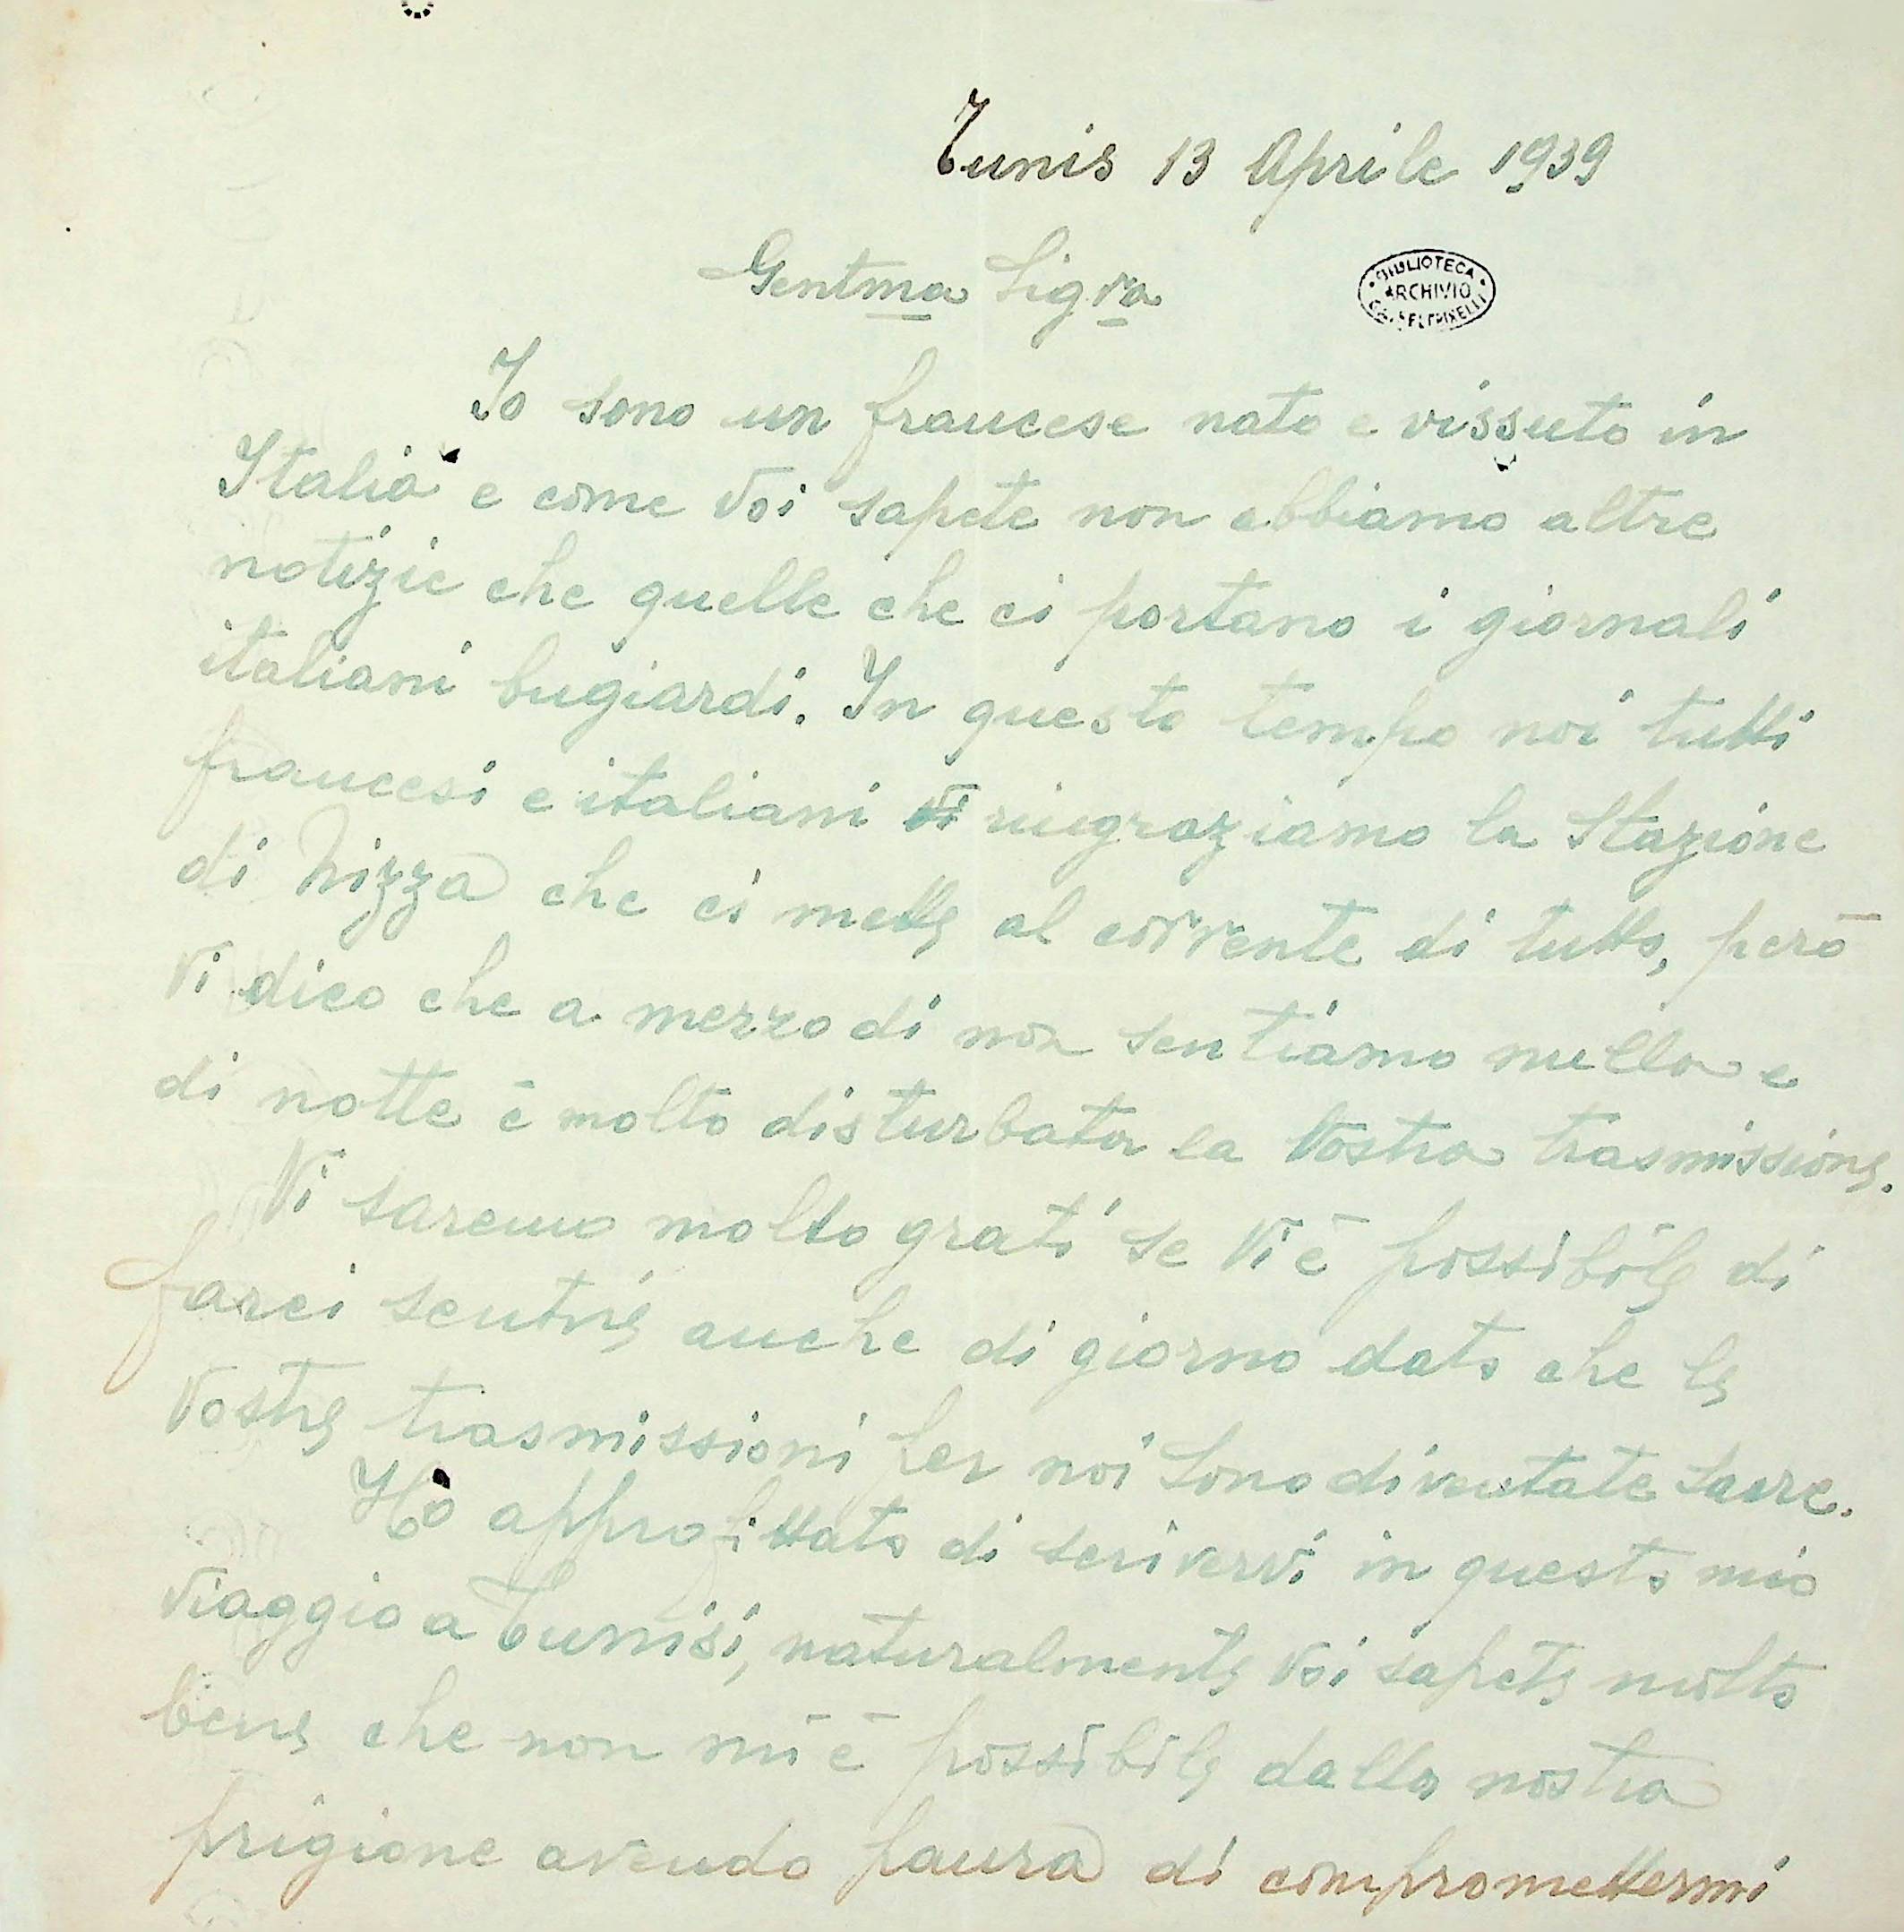 Tunis 13 Aprile 1939
Gentma Sigra
BIBLIOTECA
ARCHIVIO
G.G. FELTRINELLI
Io sono un francese nato e vissuto in
Italia e come Voi sapete non abbiamo altre
notizie che quelle che ci portano i giornali
italiani bugiardi. In questo tempo noi tutti
francesi e italiani ringraziamo la Stazione
di Nizza che ci mette al corrente di tutto, però
Vi dico che a mezzodi non sentiamo nulla e
di notte è molto disturbata la Vostra trasmissione.
Vi saremo molto grati se Vi è possibile di
farci sentire anche di giorno dato che le
Vostre trasmissioni per noi sono diventate sacre.
Ho approfittato di scrivervi in questo mio
viaggio a Tunisi, naturalmente Voi sapete molto
bene che non mi è possibile dalla nostra
prigione avendo paura di compromettermi